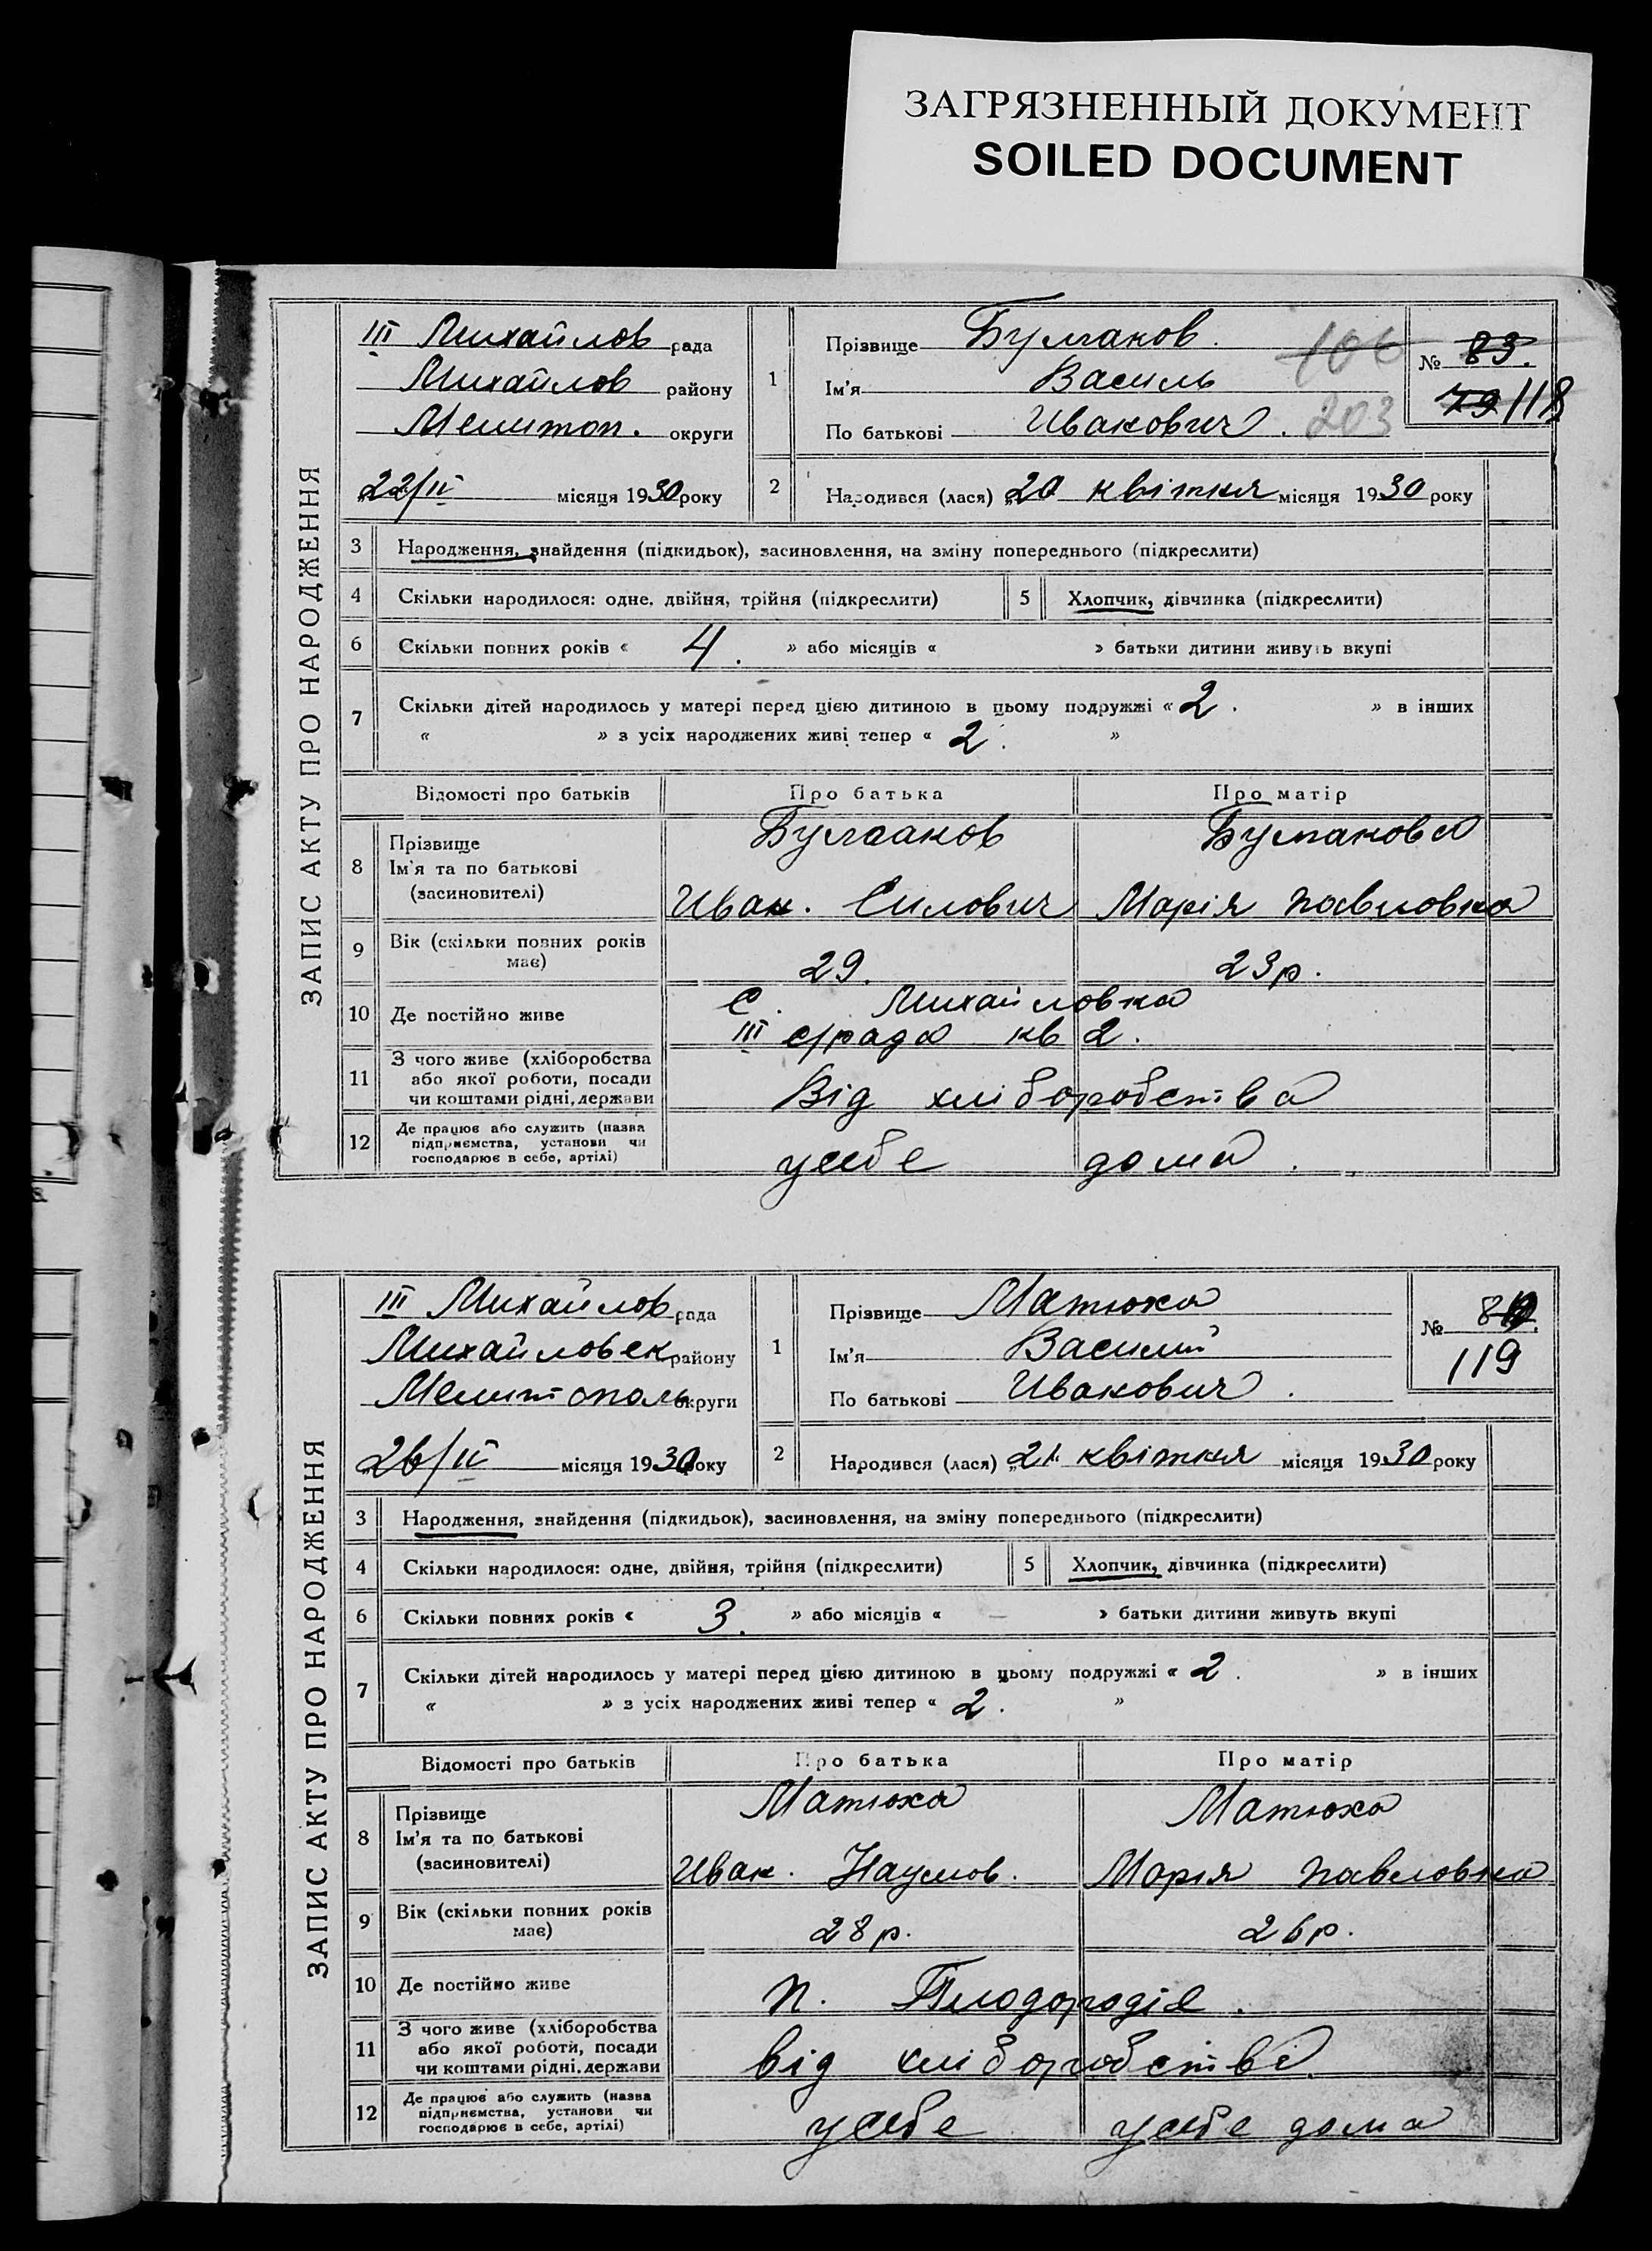 ЗАГРЯЗНЕННЫЙ ДОКУМЕНТ
SOILED DOCUMENT
ЗАПИС АКТУ ПРО НАРОДЖЕННЯ
III Михайлов рада
Михайлов району
Мелитоп. округи
„22/IV місяця 1930 року
1
Прізвище Булгаков.
Ім'я Василь
По батькові Иванович.
106
203
№ 83.
79 118
2 Народився (лася) „20 квітня місяця 1930 року
3 Народження, знайдення (підкидьок), засиновлення, на зміну попереднього (підкреслити)
4 Скільки народилося: одне, двійня, трійня (підкреслити) 5 Хлопчик, дівчинка (підкреслити)
6 Скільки повних років « 4. » або місяців « » батьки дитини живуть вкупі
7 Скільки дітей народилось у матері перед цією дитиною в цьому подружжі « 2. » в інших
« » з усіх народжених живі тепер « 2. »
Відомості про батьків Про батька Про матір
8 Прізвище
Ім'я та по батькові
(засиновителі)
Булгаков Булгакова
Иван. Силович Марія Павловна
9 Вік (скільки повних років
має)
29. 23р.
10 Де постійно живе
с. Михайловка
III с/рада кв 2.
11 З чого живе (хліборобства
або якої роботи, посади
чи коштами рідні, держави
Від хліборобства
12 Де працює або служить (назва
підприємства, установи чи
господарює в себе, артілі)
у себе дома.
ЗАПИС АКТУ ПРО НАРОДЖЕННЯ
III Михайлов рада
Михайловск району
Мелитополь округи
„26/IV місяця 1930 року
1
Прізвище Матюха
Ім'я Василий
По батькові Иванович.
№
119
2 Народився (лася) „21 квітня місяця 1930 року
3 Народження, знайдення (підкидьок), засиновлення, на зміну попереднього (підкреслити)
4 Скільки народилося: одне, двійня, трійня (підкреслити) 5 Хлопчик, дівчинка (підкреслити)
6 Скільки повних років « 3. » або місяців « — » батьки дитини живуть вкупі
7 Скільки дітей народилось у матері перед цією дитиною в цьому подружжі « 2. » в інших
« » з усіх народжених живі тепер « 2. »
Відомості про батьків Про батька Про матір
8 Прізвище
Ім'я та по батькові
(засиновителі)
Матюха Матюха
Иван. Наумов. Марія Павловна
9 Вік (скільки повних років
має)
28р. 26р.
10 Де постійно живе
п. Плодородіє.
11 З чого живе (хліборобства
або якої роботи, посади
чи коштами рідні, держави
від хліборобства.
12 Де працює або служить (назва
підприємства, установи чи
господарює в себе, артілі)
у себе у себе дома